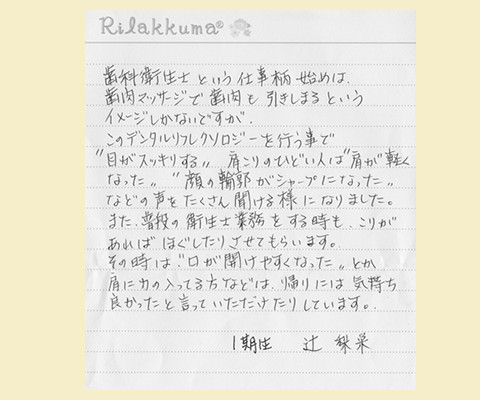 Rilakkuma®
歯科衛生士という仕事柄始めは、
歯肉マッサージで歯肉も引きしまるという
イメージしかないですが、
このデンタルリフレクソロジーを行う事で
"目がスッキリする〟 肩こりのひどい人は"肩が軽く
なった〟 "顔の輪郭がシャープになった〟
などの声をたくさん聞ける様になりました。
また、普段の衛生士業務をする時も、こりが
あればほぐしたりさせてもらいます。
その時は、"口が開けやすくなった〟とか
肩に力の入ってる方などは、帰りには気持ち
良かったと言っていただけたりしています。
1期生 辻 梨菜